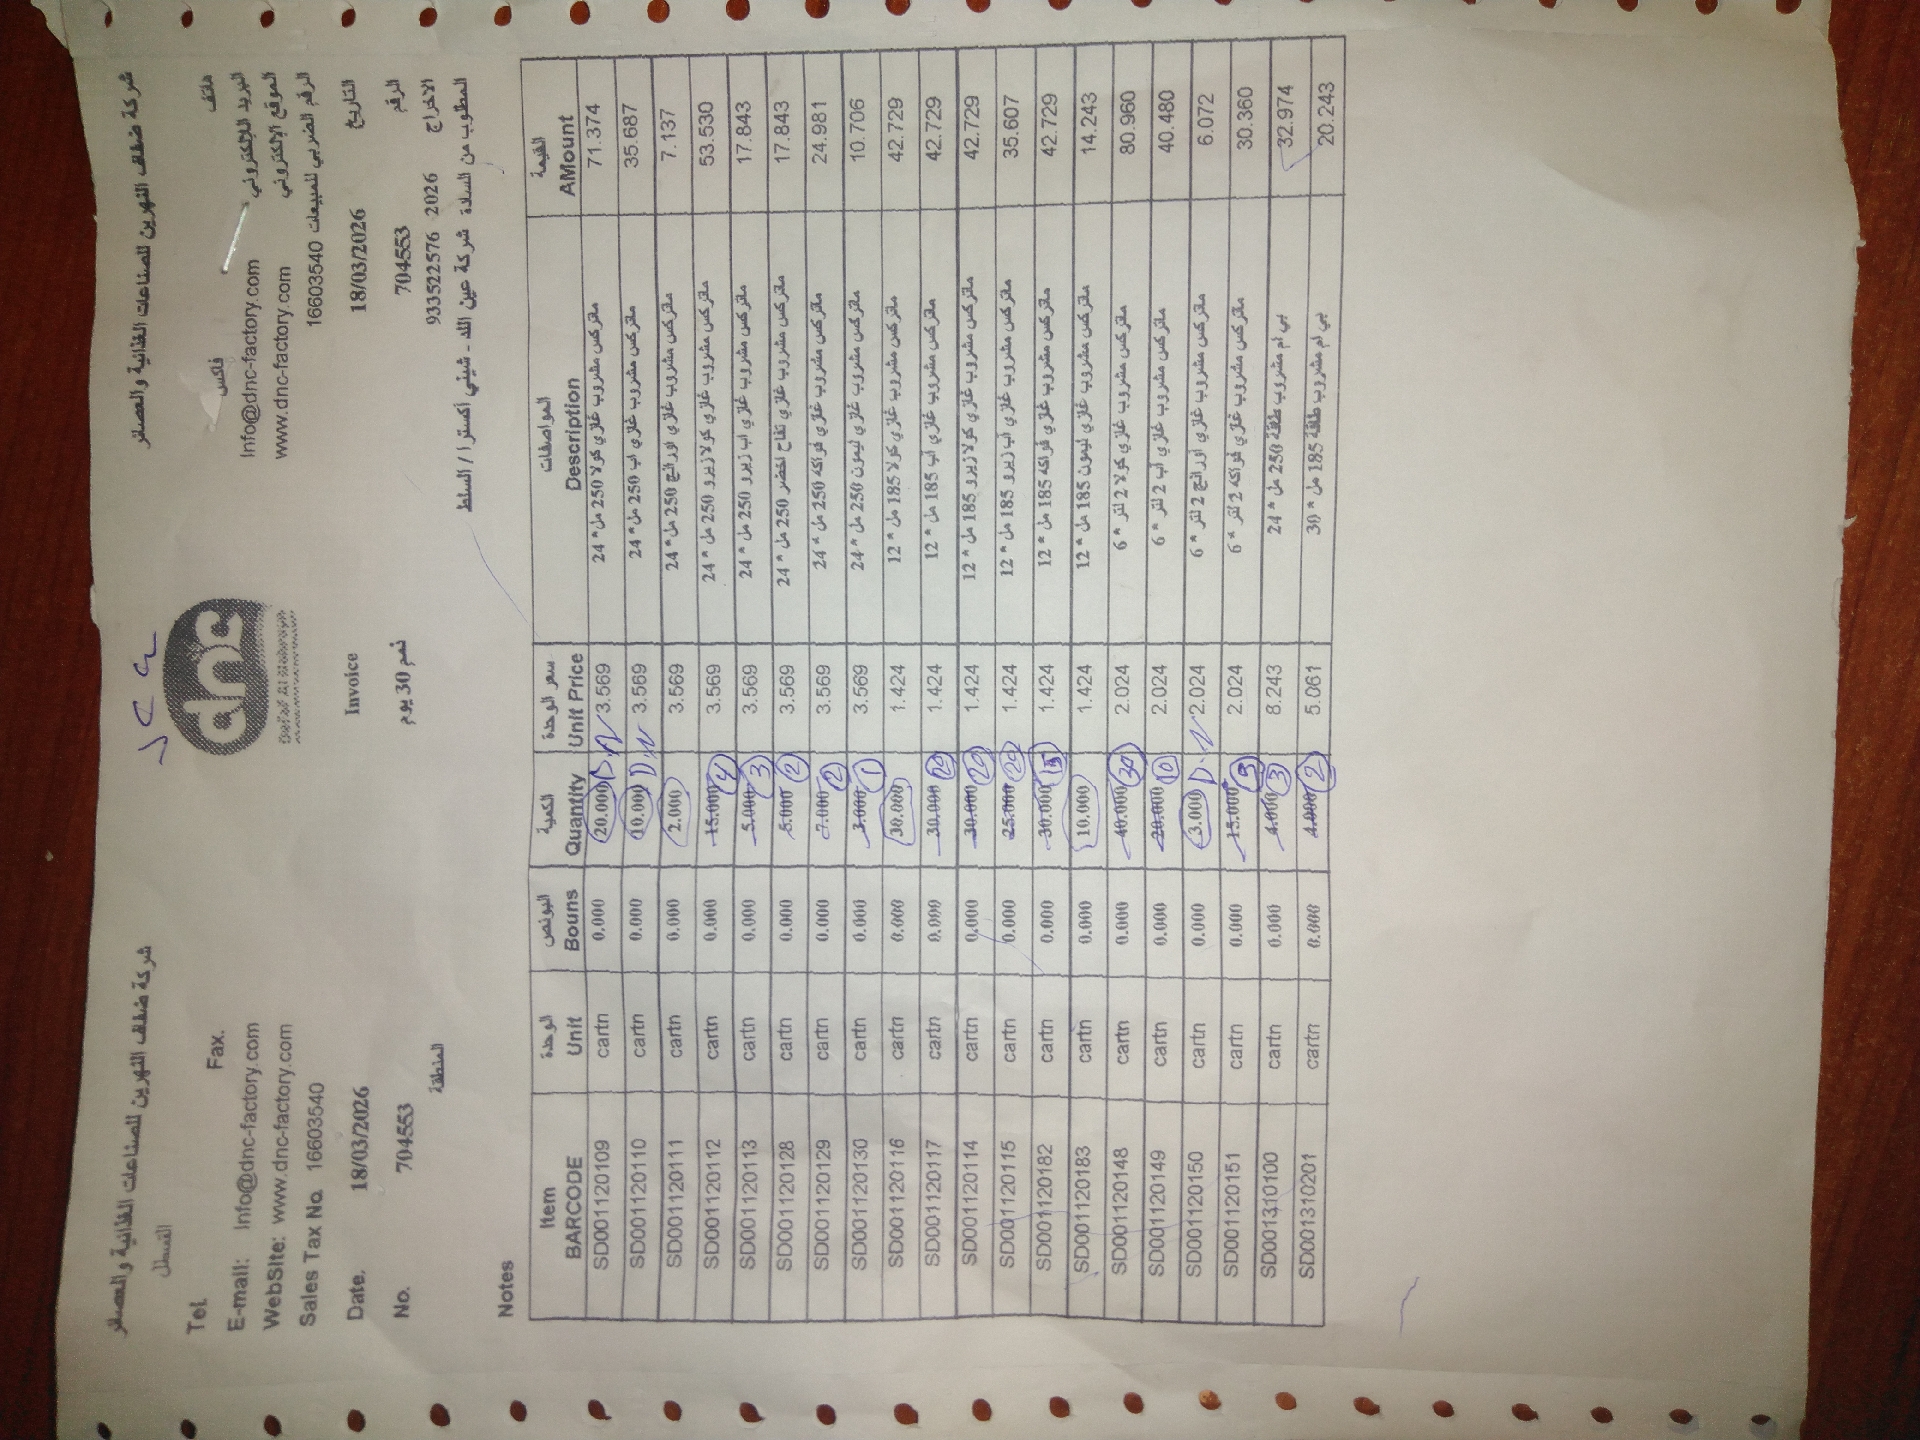 شركة ضفاف النهرين للصناعات الغذائية والعصائر
شركة ضفاف النهرين للصناعات الغذائية والعصائر
القسطل
dnc
Tel.
Fax.
فاكس
هاتف
E-mail: Info@dnc-factory.com
Info@dnc-factory.com البريد الالكتروني
WebSite: www.dnc-factory.com
www.dnc-factory.com الموقع الالكتروني
Sales Tax No. 16603540
16603540 الرقم الضريبي للمبيعات
Date. 18/03/2026
Invoice
18/03/2026 التاريخ
No. 704553
نمم 30 يوم
704553 الرقم
المنطقة
933522576 2026 الاخراج
المطلوب من السادة شركة عين الله - شيني اكسترا / السلط
Notes
Item BARCODE | الوحدة Unit | البونص Bouns | الكمية Quantity | سعر الوحدة Unit Price | المواصفات Description | القيمة AMount
SD001120109 cartn 0.000 20.000 D.N 3.569 ماتركس مشروب غازي كولا 250 مل * 24 71.374
SD001120110 cartn 0.000 10.000 D.N 3.569 ماتركس مشروب غازي اب 250 مل * 24 35.687
SD001120111 cartn 0.000 2.000 3.569 ماتركس مشروب غازي اورانج 250 مل * 24 7.137
SD001120112 cartn 0.000 15.000 4 3.569 ماتركس مشروب غازي كولا زيرو 250 مل * 24 53.530
SD001120113 cartn 0.000 5.000 3 3.569 ماتركس مشروب غازي اب زيرو 250 مل * 24 17.843
SD001120128 cartn 0.000 5.000 2 3.569 ماتركس مشروب غازي تفاح اخضر 250 مل * 24 17.843
SD001120129 cartn 0.000 7.000 2 3.569 ماتركس مشروب غازي فواكه 250 مل * 24 24.981
SD001120130 cartn 0.000 3.000 1 3.569 ماتركس مشروب غازي ليمون 250 مل * 24 10.706
SD001120116 cartn 0.000 30.000 1.424 ماتركس مشروب غازي كولا 185 مل * 12 42.729
SD001120117 cartn 0.000 30.000 20 1.424 ماتركس مشروب غازي اب 185 مل * 12 42.729
SD001120114 cartn 0.000 30.000 20 1.424 ماتركس مشروب غازي كولا زيرو 185 مل * 12 42.729
SD001120115 cartn 0.000 25.000 20 1.424 ماتركس مشروب غازي اب زيرو 185 مل * 12 35.607
SD001120182 cartn 0.000 30.000 15 1.424 ماتركس مشروب غازي فواكه 185 مل * 12 42.729
SD001120183 cartn 0.000 10.000 1.424 ماتركس مشروب غازي ليمون 185 مل * 12 14.243
SD001120148 cartn 0.000 40.000 30 2.024 ماتركس مشروب غازي كولا 2 لتر * 6 80.960
SD001120149 cartn 0.000 20.000 10 2.024 ماتركس مشروب غازي اب 2 لتر * 6 40.480
SD001120150 cartn 0.000 3.000 D.N 2.024 ماتركس مشروب غازي اورانج 2 لتر * 6 6.072
SD001120151 cartn 0.000 15.000 9 2.024 ماتركس مشروب غازي فواكه 2 لتر * 6 30.360
SD001310100 cartn 0.000 4.000 3 8.243 بي ام مشروب طاقة 250 مل * 24 32.974
SD001310201 cartn 0.000 4.000 2 5.061 بي ام مشروب طاقة 185 مل * 30 20.243